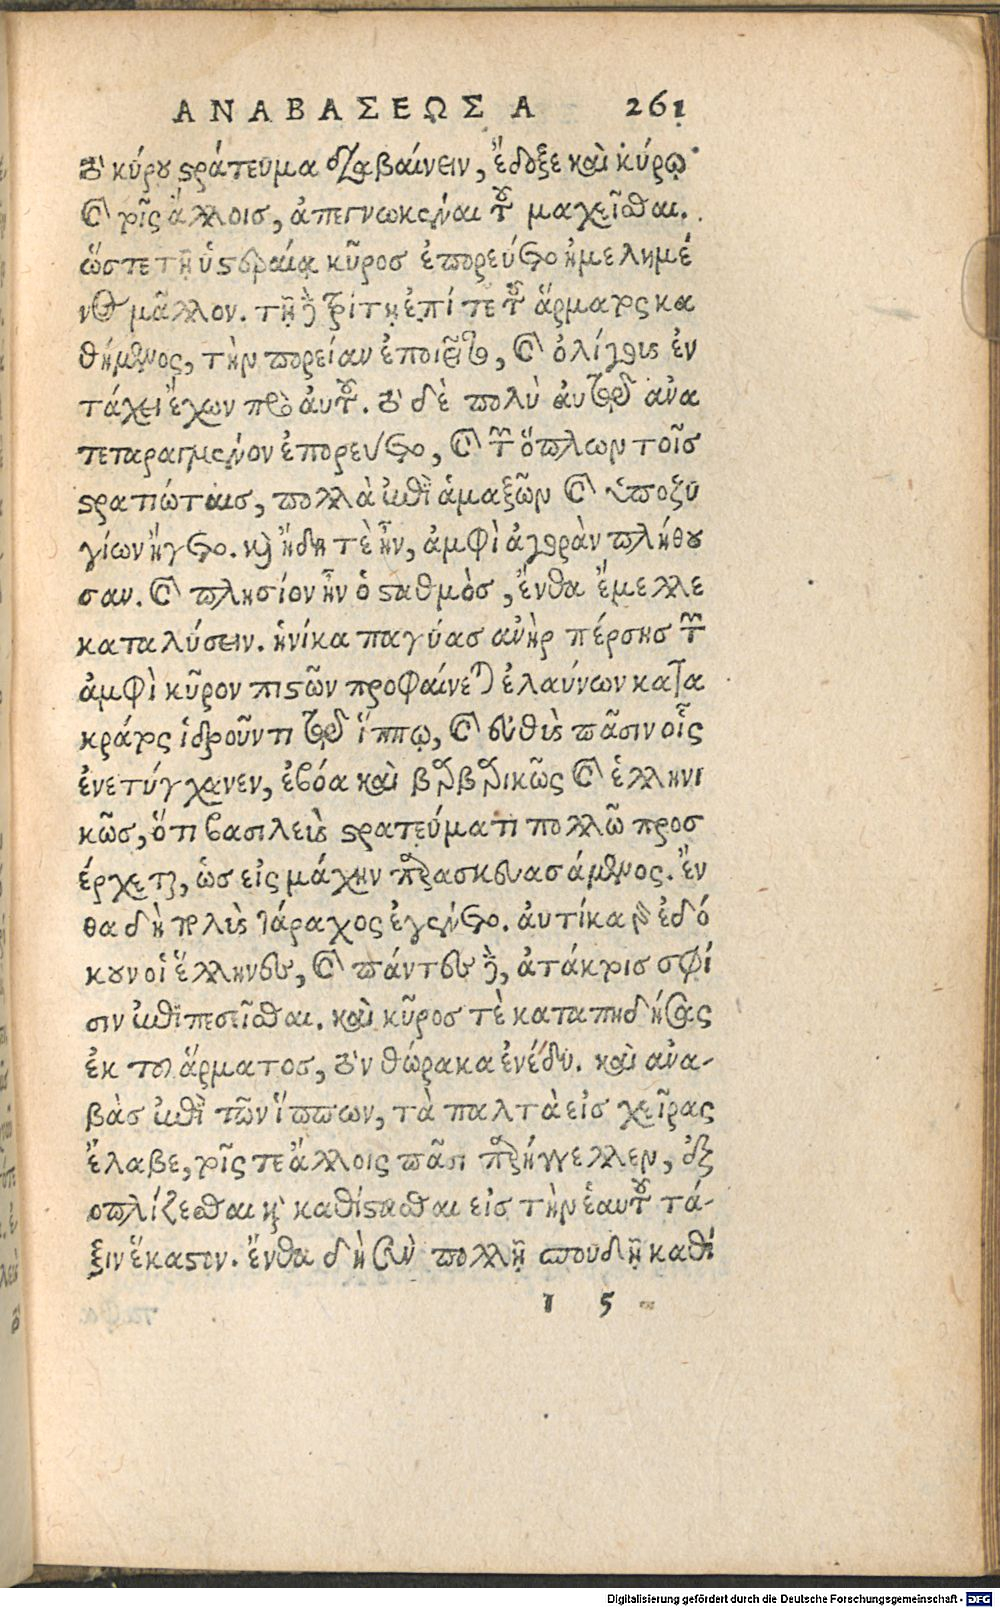 ΑΝΑΒΑΣΕΩΣ Α 261
τὸ κύρου στράτευμα διαβαίνειν, ἔδοξε καὶ κύρῳ
καὶ τοῖς ἄλλοις, ἀπεγνωκέναι τοῦ μαχεῖσθαι.
ὥστε τῇ ὑστεραίᾳ κῦρος ἐπορεύετο ἠμελημέ
νως μᾶλλον. τῇ δὲ τρίτῃ ἐπί τε τοῦ ἅρματος κα
θήμενος, τὴν πορείαν ἐποιεῖτο, καὶ ὀλίγους ἐν
τάχει ἔχων πρὸ αὐτοῦ. τὸ δὲ πολὺ αὐτῷ ἀνα
τεταραγμένον ἐπορεύετο, καὶ τῶν ὅπλων τοῖς
στρατιώταις, πολλὰ ἐπὶ ἁμαξῶν καὶ ὑποζυ
γίων ἤγετο. καὶ ἤδη τὲ ἦν, ἀμφὶ ἀγορὰν πλήθου
σαν. καὶ πλησίον ἦν ὁ σταθμὸς, ἔνθα ἔμελλε
καταλύσειν. ἡνίκα παγύας ἀνὴρ πέρσης τῶν
ἀμφὶ κῦρον πιστῶν προφαίνεται ἐλαύνων κατα
κράτος ἱδροῦντι τῷ ἵππῳ, καὶ εὐθὺς πᾶσιν οἷς
ἐνετύγχανεν, ἐβόα καὶ βαρβαρικῶς καὶ ἑλληνι
κῶς, ὅτι βασιλεὺς στρατεύματι πολλῶ προσ
έρχεται, ὡς εἰς μάχην παρασκευασάμενος. ἔν
θα δὴ πολὺς τάραχος ἐγένετο. αὐτίκα γὰρ ἐδό
κουν οἱ ἕλληνες, καὶ πάντες δὲ, ἀτάκτοις σφί
σιν ἐπιπεσεῖσθαι. καὶ κῦρος τὲ καταπηδήσας
ἐκ τοῦ ἅρματος, τὸν θώρακα ἐνέδυ. καὶ ἀνα-
βὰς ἐπὶ τῶν ἵππων, τὰ παλτὰ εἰς χεῖρας
ἔλαβε, τοῖς τε ἄλλοις πᾶσι παρήγγελλεν, ἐξ
οπλίζεσθαι καὶ καθίστασθαι εἰς τὴν ἑαυτοῦ τά-
ξιν ἕκαστον. ἔνθα δὴ σὺν πολλῇ σπουδῇ καθί
I 5
Digitalisierung gefördert durch die Deutsche Forschungsgemeinschaft - DFG